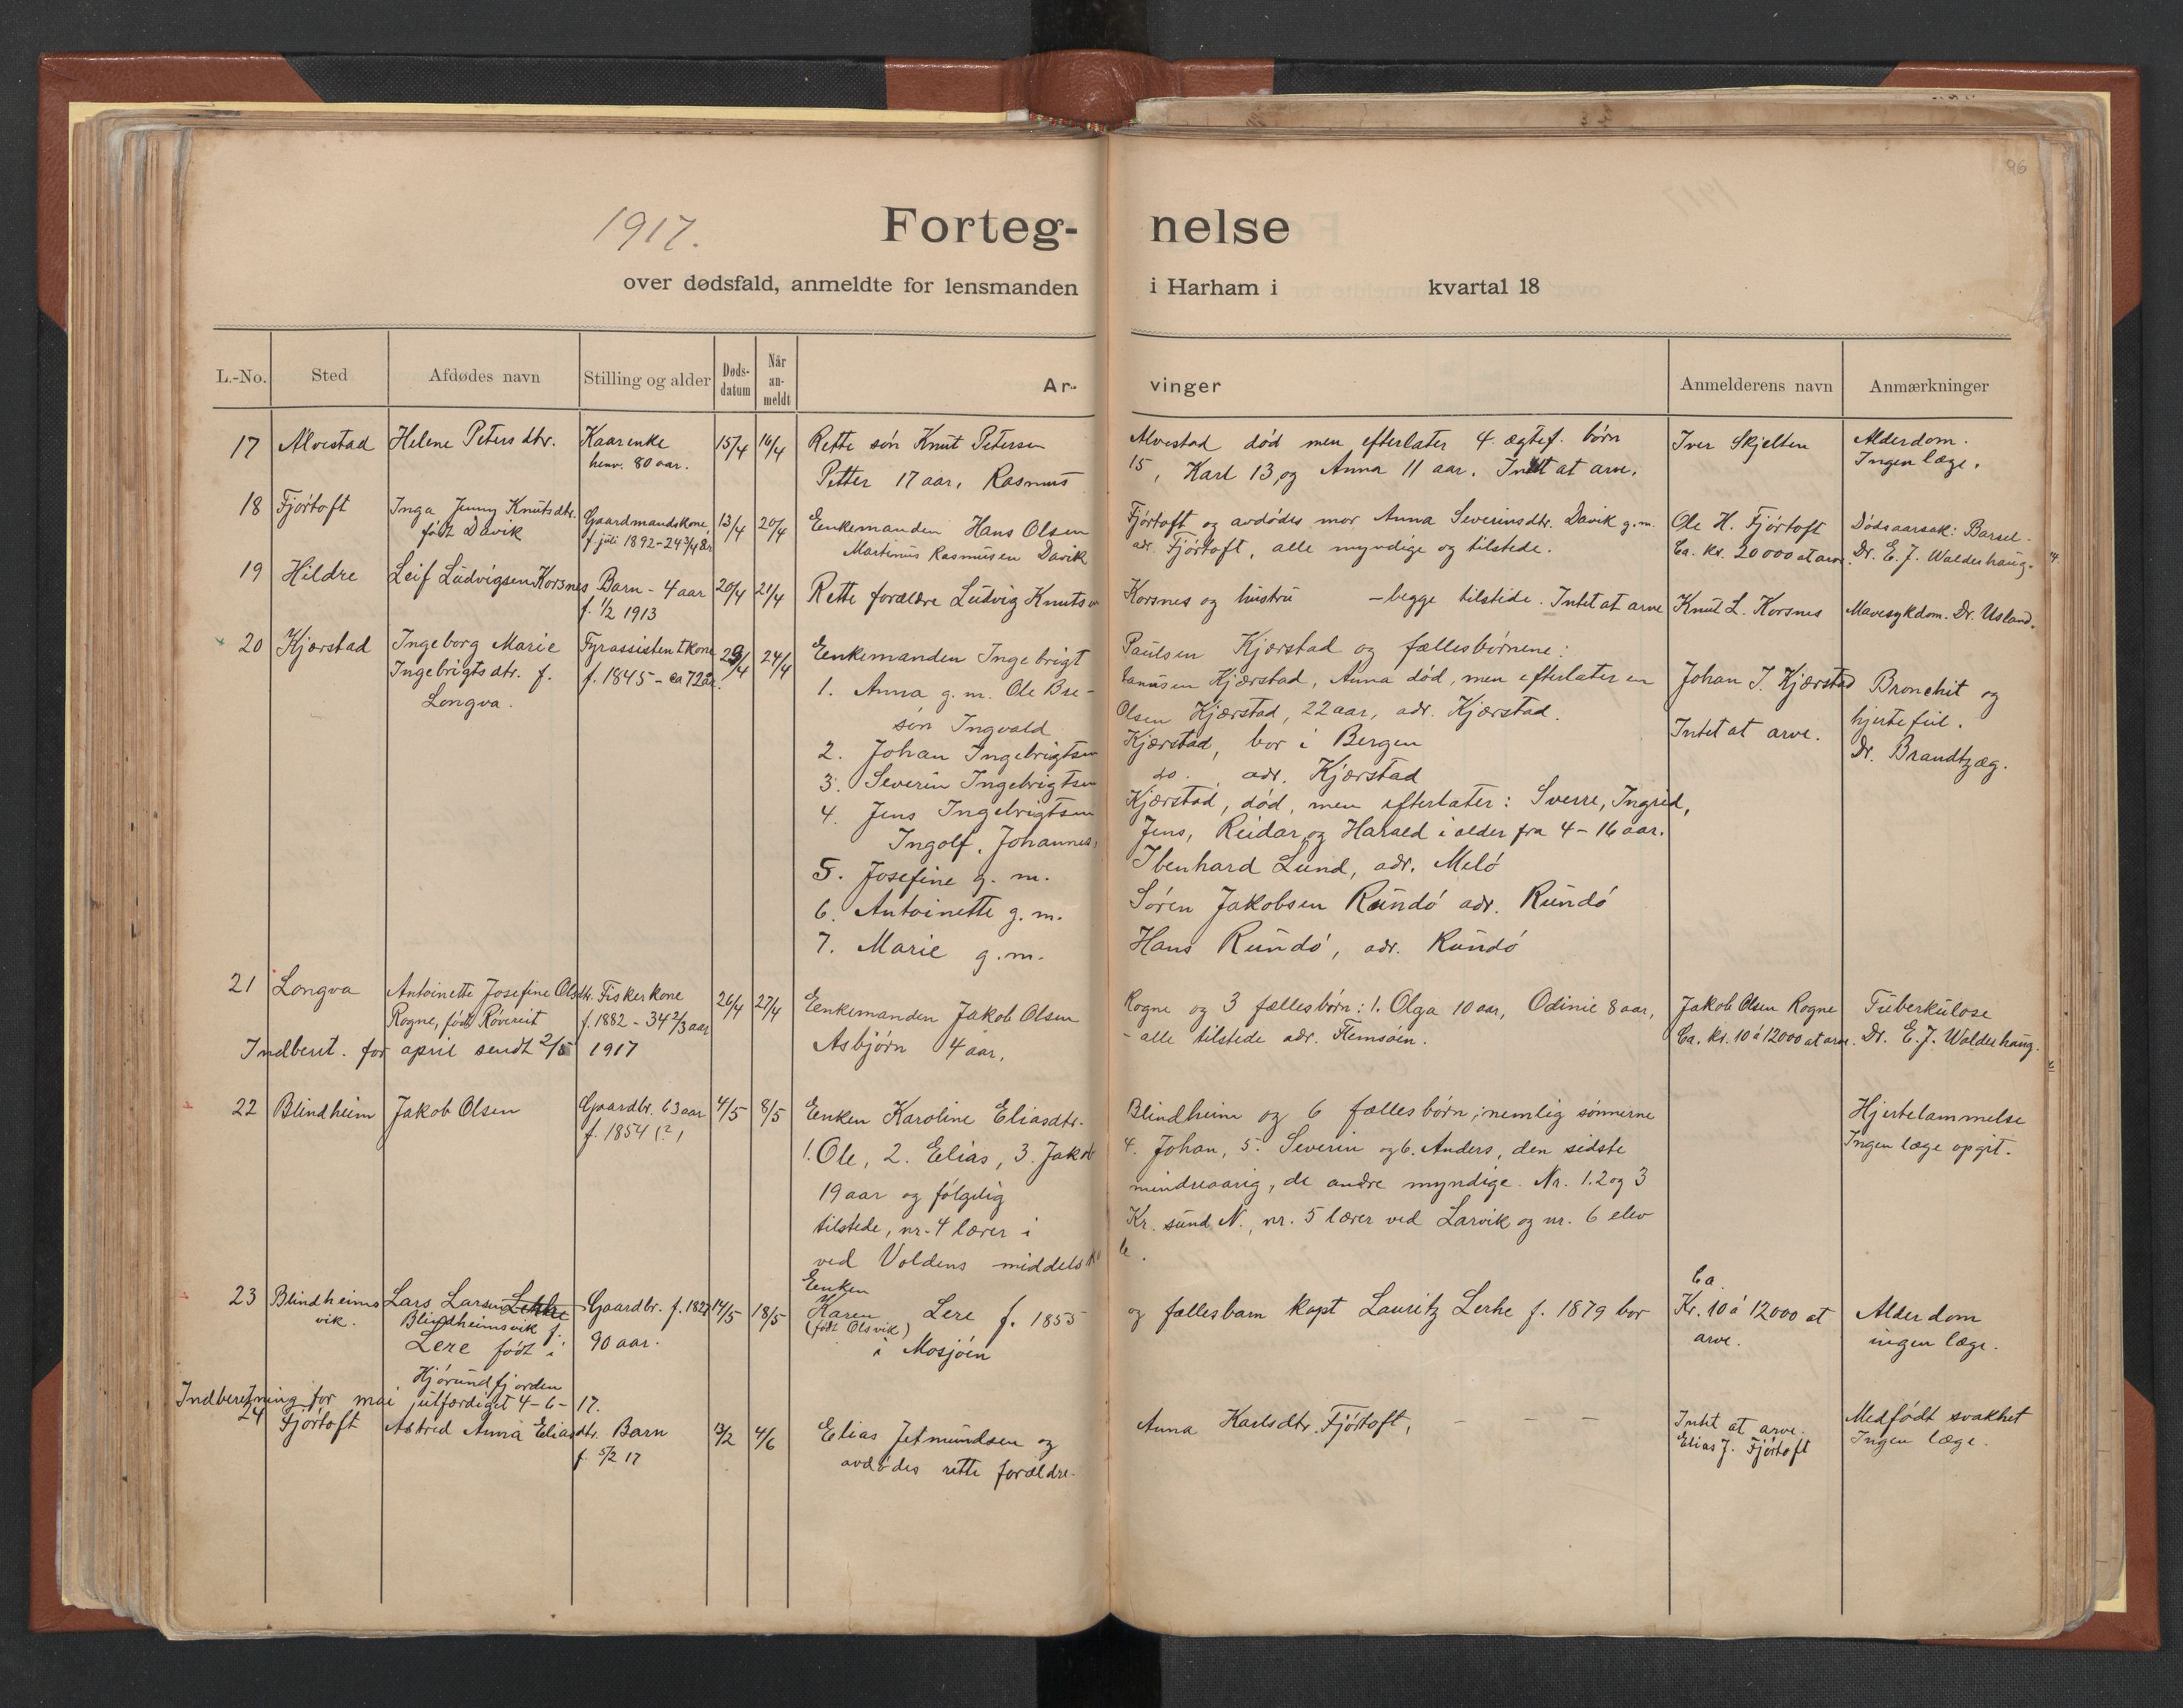 96
1917.
Forteg-nelse
over dødsfald, anmeldte for lensmanden i Harham i kvartal 18
L.-No. Sted Afdødes navn Stilling og alder Dødsdatum Når anmeldt Arvinger Anmelderens navn Anmærkninger
17 Alvestad Helene Petersdtr. Kaarenke 15/4 16/4 Rette søn Knut Petersen Alvestad død men efterlater 4 ægtef. børn Iver Skjelten Alderdom.
henv. 80 aar. Petter 17 aar, Rasmus 15, Karl 13, og Anna 11 aar. Intet at arve. Ingen læge.
18 Fjørtoft Inga Jenny Knutsdtr. Gaardmandskone 13/4 20/4 Enkemanden Hans Olsen Fjørtoft og avdødes mor Anna Severinsdtr. Davik g.m. Ole H. Fjørtoft Dødsaarsak: Barsel.
født Davik f. juli 1892 - 24 3/4 år Martinus Rasmusen Davik adr. Fjørtoft, alle myndige og tilstede. Ca. kr. 20000 at arve. Dr. E. J. Walderhaug.
19 Hildre Leif Ludvigsen Korsnes Barn - 4 aar 20/4 21/4 Rette forældre Ludvig Knutsen Korsnes og hustru - begge tilstede. Intet at arve Knut L. Korsnes Mavesykdom. Dr. Usland.
f. 1/2 1913
20 Kjørstad Ingeborg Marie Fyrassistentkone 23/4 24/4 Enkemanden Ingebrigt Paulsen Kjørstad og fællesbørnene:
Ingebrigtsdtr. f. f. 1845 - ca 72 år. 1. Anna g. m. Ole Bre- Kjærstad, Anna død, men efterlater en Johan I. Kjærstad Bronchit og
Longva. søn Ingvald Olsen Kjærstad, 22 aar, adr. Kjærstad. Intet at arve. hjertefeil.
2. Johan Ingebrigtsen Kjærstad, bor i Bergen Dr. Brandtzæg.
3. Severin Ingebrigtsen do. , adr. Kjærstad
4. Jens Ingebrigtsen Kjærstad, død, men efterlater: Sverre, Ingrid,
Ingolf, Johannes, Jens, Reidar og Harald i alder fra 4 - 16 aar.
5. Josefine g. m. Ibenhard Lund, adr. Melø
6. Antoinette g. m. Søren Jakobsen Rundø adr. Rundø
7. Marie g. m. Hans Rundø, adr. Rundø
21 Longva Antoinette Josefine Olsdtr. Fiskerkone 26/4 27/4 Enkemanden Jakob Olsen Rogne og 3 fællesbørn: 1. Olga 10 aar, Odinie 8 aar, Jakob Olsen Rogne Tuberkulose
Rogne, født Røvereit f. 1882 - 34 2/3 aar Asbjørn 4 aar, - alle tilstede adr. Flemsøen. Ca. kr. 10 á 12000 at arve. Dr. E. J. Walderhaug.
Indberet. for april sendt 2/5 1917
22 Blindheim Jakob Olsen Gaardbr. 63 aar 4/5 8/5 Enken Karoline Eliasdtr. Blindheim og 6 fællesbørn, nemlig sønnerne Hjertelammelse
f. 1854 (?) 1. Ole, 2. Elias, 3. Jakob 4. Johan, 5. Severin og 6. Anders, den sidste Ingen læge opgit.
19 aar og følgelig mindreaarig, de andre myndige. Nr. 1.2 og 3
tilstede, nr. 4 lærer i Kr. sund N., nr. 5 lærer ved Larvik og nr. 6 elev
ved Voldens middels
23 Blindheims Lars Larsen Lehre Gaardbr. f. 1827 14/5 18/5 Enken Ca.
vik. Blindheimsvik f. 90 aar. Karen Lere f. 1855 og fællesbarn kapt Lauritz Lerhe f. 1879 bor Kr. 10 á 12000 at Alderdom
Lere født i (født Olsvik) i Mosjøen arve. ingen læge.
Hjørundfjorden
Indberetning for mai utfærdiget 4-6-17.
24 Fjørtoft Astrid Anna Eliasdtr. Barn 13/2 4/6 Elias Jetmundsen og Anna Karlsdtr. Fjørtoft, - - - Intet at arve. Medfødt svakhet
f. 5/2 17 avdødes rette forældre. Elias J. Fjørtoft Ingen læge.